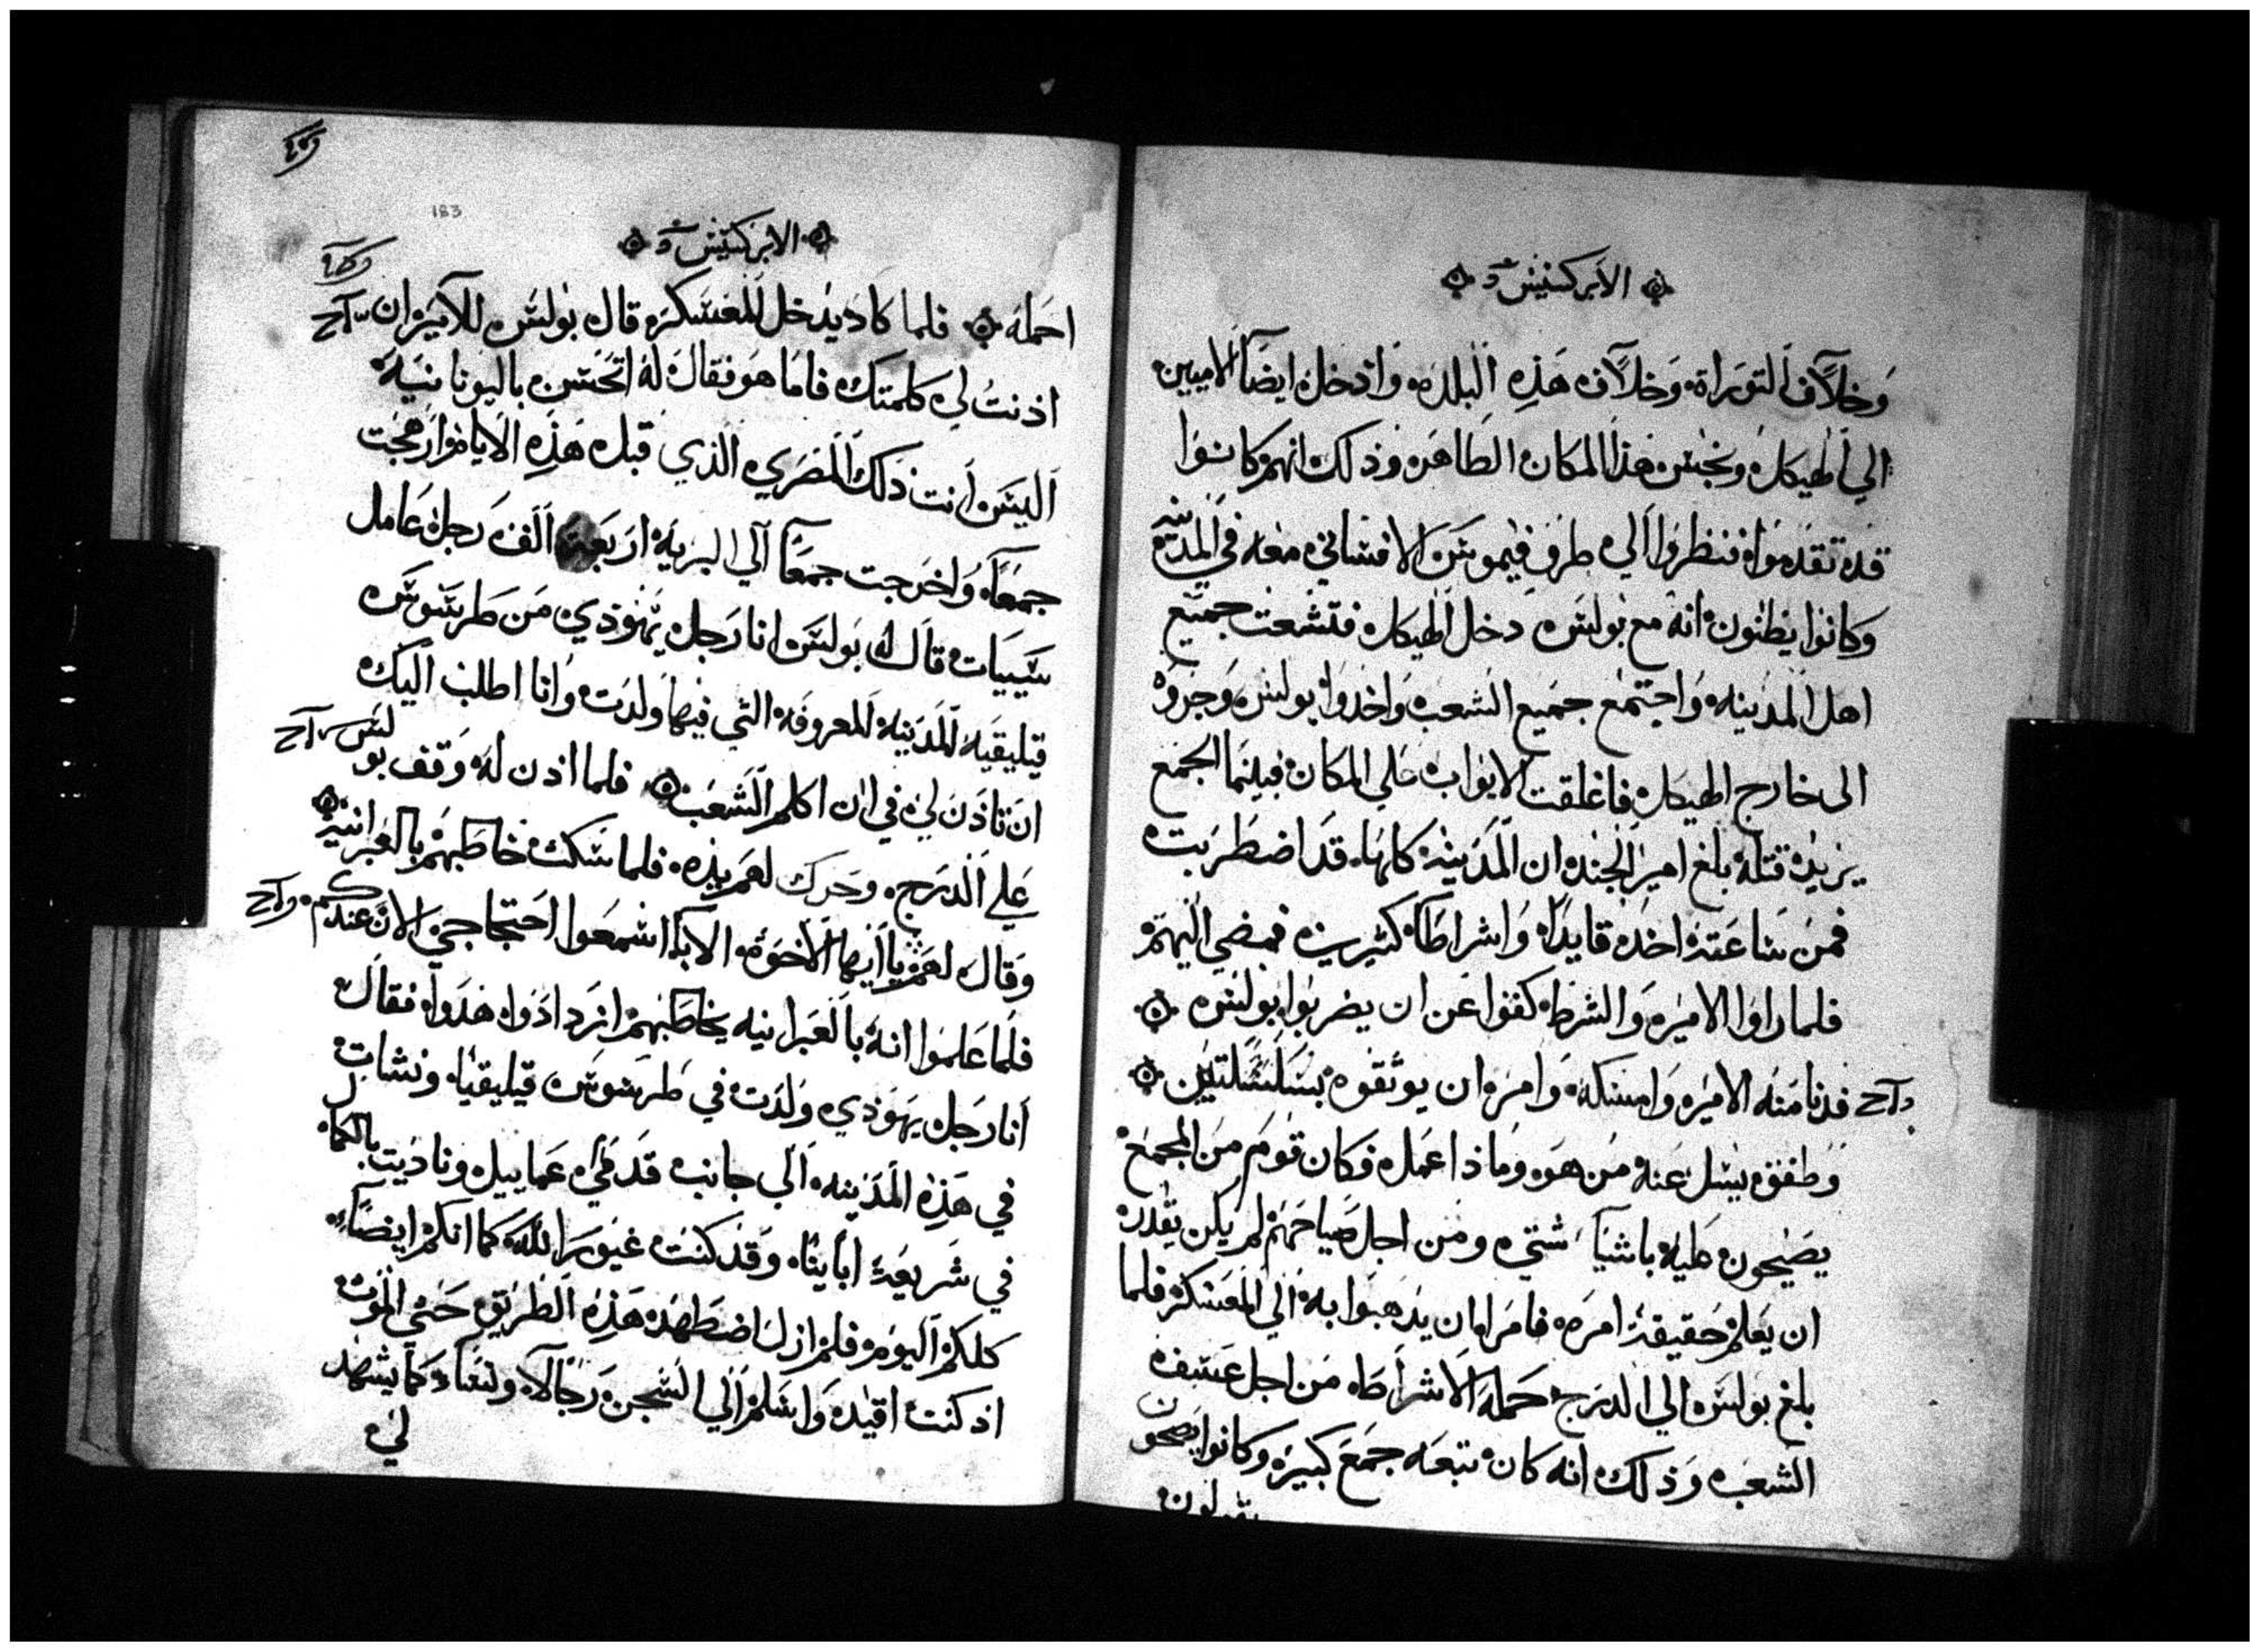 الابركسيس
وخلاف التوراة وخلاف هذه البلده واذخل ايضا الاميين
الي الهيكل ونجس هذا المكان الطاهر وذلك انهم كانوا
قد تقدموا فنظروا الي طرفيموس الافساني معه في المدينه
وكانوا يظنون انه مع بولس دخل الهيكل فتشعت جميع
اهل المدينه واجتمع جميع الشعب واخدوا بولس وجروه
الى خارج الهيكل فاغلقت الابواب علي المكان فبينما الجمع
يريد قتله بلغ امير الجند ان المدينه كلها قد اضطربت
فمن ساعته اخد قايدا واشراطا كثيرين فمضي اليهم
فلما راوا الامير والشرط كفوا عن ان يضربوا بولس
فدنا منه الامير وامسكه وامر ان يوثقوه بسلسلتين
وطفق يسل عنه من هو وماذا عمل فكان قوم من الجمع
يصيحون عليه باشيا شتي ومن اجل صياحهم لم يكن يقدر
ان يعلم حقيقة امره فامر ان يذهبوا به الي المعسكر فلما
بلغ بولس الي الدرج حمله الاشراط من اجل عسف
الشعب وذلك انه كان تبعه جمع كبير وكانوا يصيحون
يقولون
183
الابركسيس
احمله فلما كاد يدخل المعسكر قال بولس للامير ان
اذنت لي كلمتك فاما هو فقال له اتحسن باليونانيه
اليس انت ذلك المصري الذي قبل هذه الايام ارهجت
جمعا واخرجت جمعا الي البريه اربعة الف رجل عامل
سييات قال له بولس انا رجل يهودي من طرسوس
قيليقيه المدينه المعروفه التي فيها ولدت وانا اطلب اليك
ان تاذن لي في ان اكلم الشعب فلما اذن له وقف بولس
علي الدرج وحرك لهم يده فلما سكت خاطبهم بالعبرانيه
وقال لهم يا ايها الاخوة الابا اسمعوا احتجاجي الان عندكم
فلما علموا انه بالعبرانيه يخاطبهم ازدادوا هدوا فقال
انا رجل يهودي ولدت في طرسوس قيليقيا ونشات
في هذه المدينه الي جانب قدمي عماييل وتاذيت بالكمال
في شريعة اباينا وقد كنت غيور الله كما انكم ايضا
كلكم اليوم فلم ازل اضطهد هذه الطريق حتي الموت
اذ كنت اقيد واسلم الي السجن رجالا ونساء كما يشهد
لي